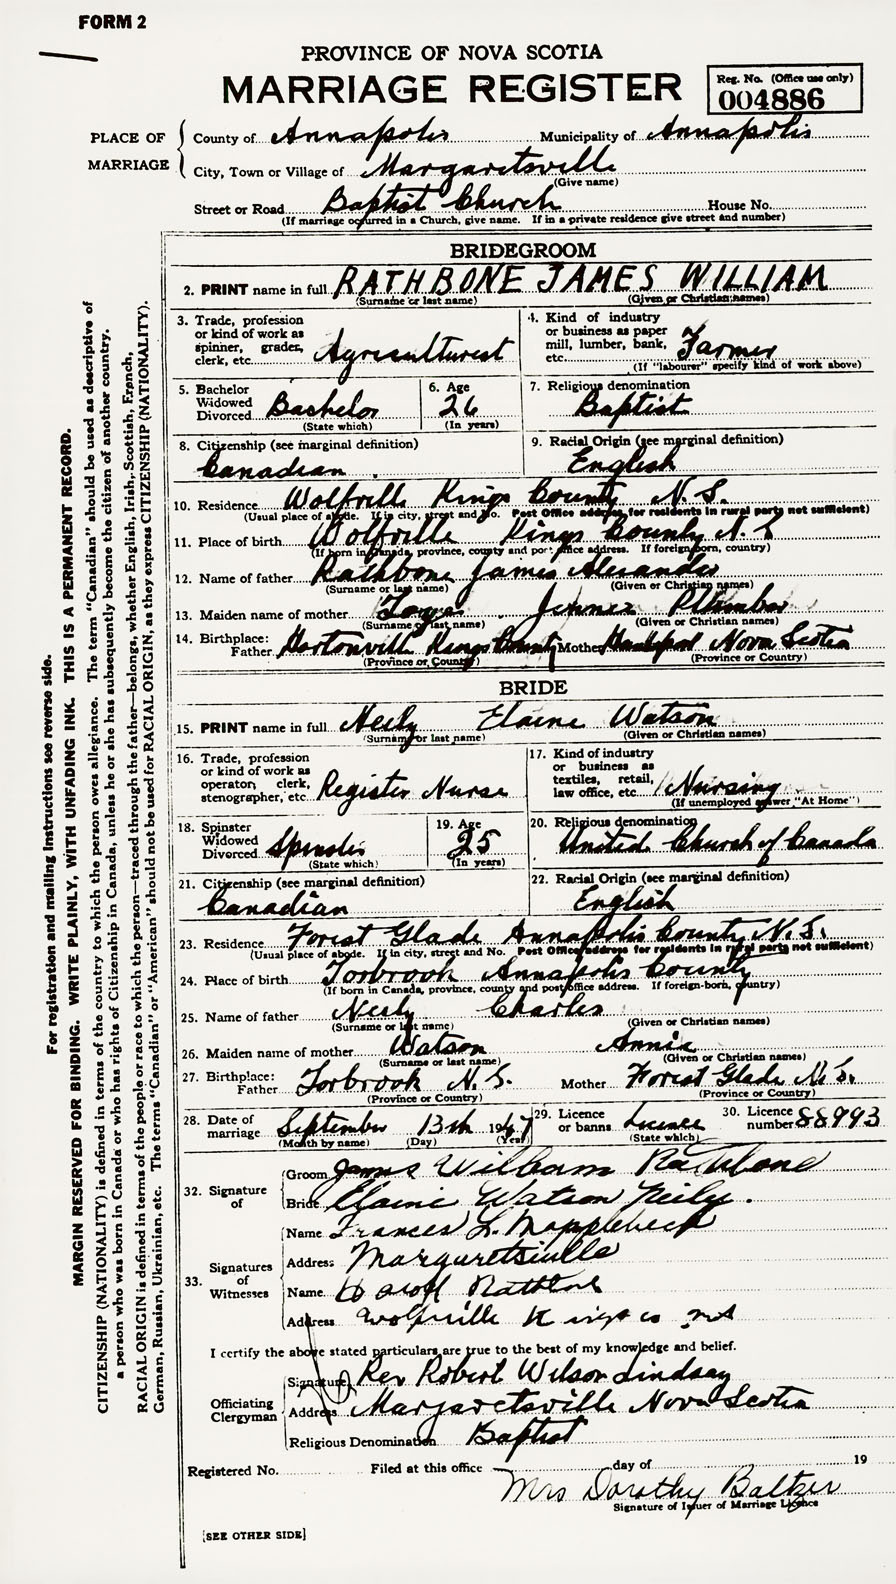 FORM 2
PROVINCE OF NOVA SCOTIA
MARRIAGE REGISTER
Reg. No. (Office use only)
004886
PLACE OF MARRIAGE
County of Annapolis Municipality of Annapolis
City, Town or Village of Margaretsville
(Give name)
Street or Road Baptist Church House No.
(If marriage occurred in a Church, give name. If in a private residence give street and number)
BRIDEGROOM
2. PRINT name in full RATHBONE JAMES WILLIAM
(Surname or last name) (Given or Christian names)
3. Trade, profession or kind of work as spinner, grader, clerk, etc. Agriculturest
4. Kind of industry or business as paper mill, lumber, bank, etc. Farmer
(If "labourer" specify kind of work above)
5. Bachelor Widowed Divorced Bachelor
(State which)
6. Age 26
(In years)
7. Religious denomination
Baptist
8. Citizenship (see marginal definition)
Canadian
9. Racial Origin (see marginal definition)
English
10. Residence Wolfville Kings County N.S.
(Usual place of abode. If in city, street and No. Post Office address for residents in rural parts not sufficient)
11. Place of birth Wolfville Kings County N.S
(If born in Canada, province, county and post office address. If foreign-born, country)
12. Name of father Rathbone James Alexander
(Surname or last name) (Given or Christian names)
13. Maiden name of mother
(Surname or last name) (Given or Christian names)
14. Birthplace:
Father Hortonville Kings County Mother Nova Scotia
(Province or Country) (Province or Country)
BRIDE
15. PRINT name in full Neily Elaine Watson
(Surname or last name) (Given or Christian names)
16. Trade, profession or kind of work as operator, clerk, stenographer, etc. Register Nurse
17. Kind of industry or business as textiles, retail, law office, etc Nursing
(If unemployed answer "At Home")
18. Spinster Widowed Divorced Spinster
(State which)
19. Age 25
(In years)
20. Religious denomination
United Church of Canada
21. Citizenship (see marginal definition)
Canadian
22. Racial Origin (see marginal definition)
English
23. Residence Forest Glade Annapolis County N.S.
(Usual place of abode. If in city, street and No. Post Office address for residents in rural parts not sufficient)
24. Place of birth Torbrook Annapolis County
(If born in Canada, province, county and post office address. If foreign-born, country)
25. Name of father Neily Charles
(Surname or last name) (Given or Christian names)
26. Maiden name of mother Watson Annie
(Surname or last name) (Given or Christian names)
27. Birthplace:
Father Torbrook N.S. Mother Forest Glade N.S.
(Province or Country) (Province or Country)
28. Date of marriage September 13th 1947
(Month by name) (Day) (Year)
29. Licence or banns Licence
(State which)
30. Licence number 88993
32. Signature of
Groom James William Rathbone
Bride Elaine Watson Neily.
33. Signatures of Witnesses
Name Frances L. Mapplebeck
Address Margaretsville
Name
Address Wolfville Kings co NS
I certify the above stated particulars are true to the best of my knowledge and belief.
Officiating Clergyman
Signature Rev Robert Wilson Lindsay
Address Margaretsville Nova Scotia
Religious Denomination Baptist
Registered No. Filed at this office day of 19
Mrs Dorothy Baltzer
Signature of Issuer of Marriage Licence
[SEE OTHER SIDE]
For registration and mailing instructions see reverse side.
MARGIN RESERVED FOR BINDING. WRITE PLAINLY, WITH UNFADING INK. THIS IS A PERMANENT RECORD.
CITIZENSHIP (NATIONALITY) is defined in terms of the country to which the person owes allegiance. The term "Canadian" should be used as descriptive of
a person who was born in Canada or who has rights of Citizenship in Canada, unless he or she has subsequently become the citizen of another country.
RACIAL ORIGIN is defined in terms of the people or race to which the person—traced through the father—belongs, whether English, Irish, Scottish, French,
German, Russian, Ukrainian, etc. The terms "Canadian" or "American" should not be used for RACIAL ORIGIN, as they express CITIZENSHIP (NATIONALITY).